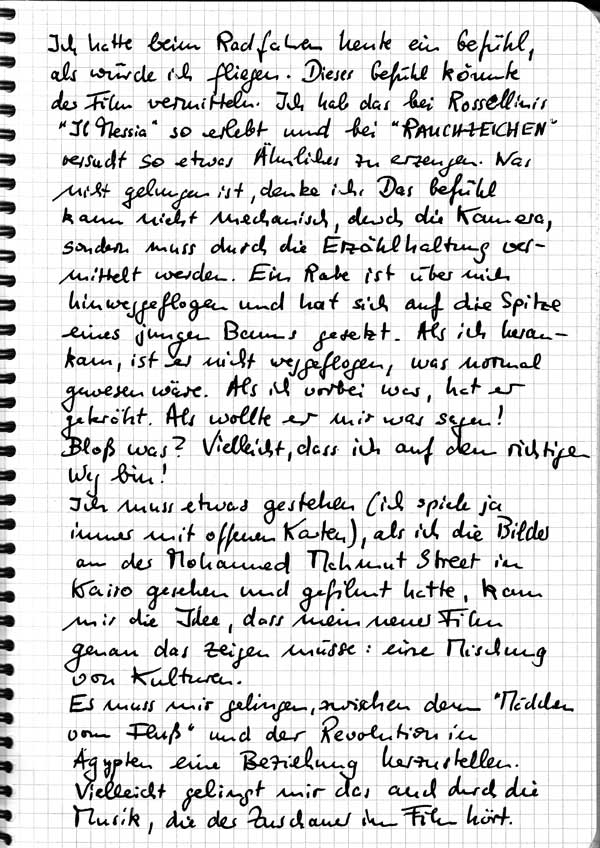 Ich hatte beim Radfahren heute ein Gefühl,
als würde ich fliegen. Dieses Gefühl könnte
der Film vermitteln. Ich hab das bei Rossellinis
"Il Messia" so erlebt und bei "RAUCHZEICHEN"
versucht so etwas Ähnliches zu erzeugen. Was
nicht gelungen ist, denke ich. Das Gefühl
kann nicht mechanisch, durch die Kamera,
sondern muss durch die Erzählhaltung ver-
mittelt werden. Ein Rabe ist über mich
hinweggeflogen und hat sich auf die Spitze
eines jungen Baums gesetzt. Als ich heran-
kam, ist er nicht weggeflogen, was normal
gewesen wäre. Als ich vorbei war, hat er
gekräht. Als wollte er mir was sagen!
Bloß was? Vielleicht, dass ich auf dem richtigen
Weg bin!
Ich muss etwas gestehen (ich spiele ja
immer mit offenen Karten), als ich die Bilder
an der Mohamed Mahmut Street in
Kairo gesehen und gefilmt hatte, kam
mir die Idee, dass mein neuer Film
genau das zeigen müsse: eine Mischung
von Kulturen.
Es muss mir gelingen, zwischen dem "Mädchen
vom Fluß" und der Revolution in
Ägypten eine Beziehung herzustellen.
Vielleicht gelingt mir das auch durch die
Musik, die der Zuschauer im Film hört.